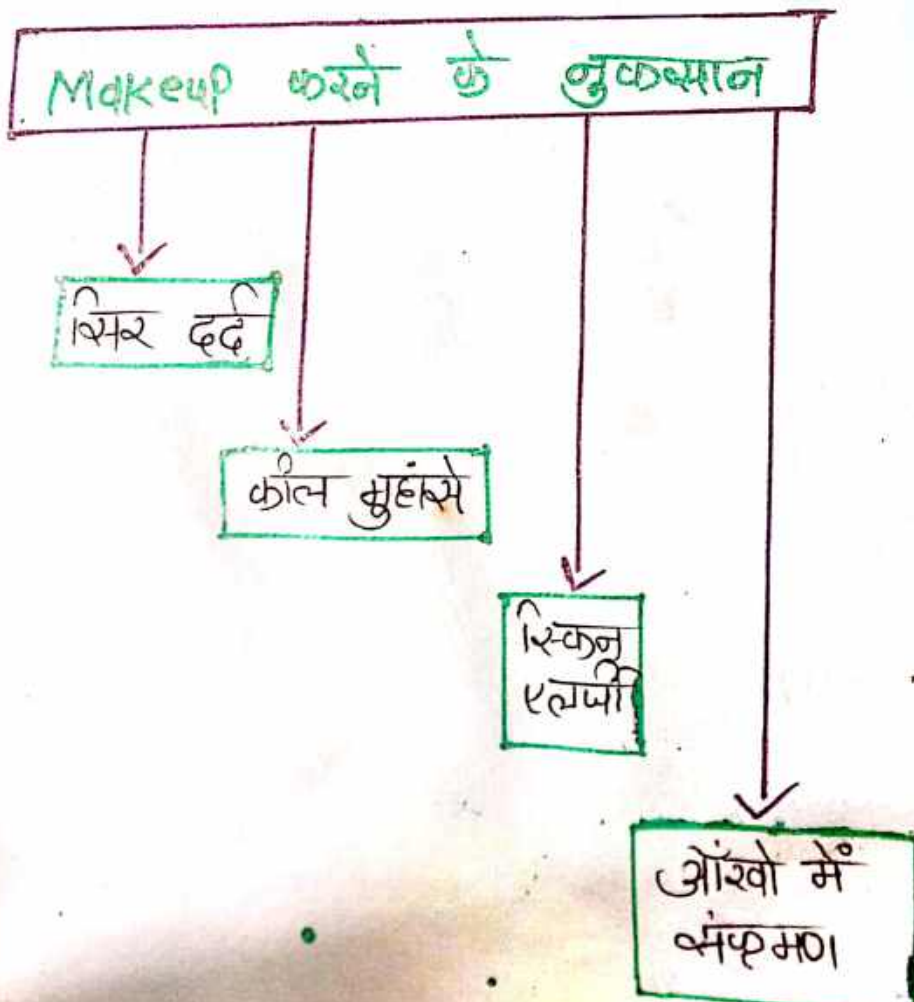 Makeup करने के नुकसान
सिर दर्द
कील मुहांसे
स्किन
एलर्जी
आँखो में
संक्रमण